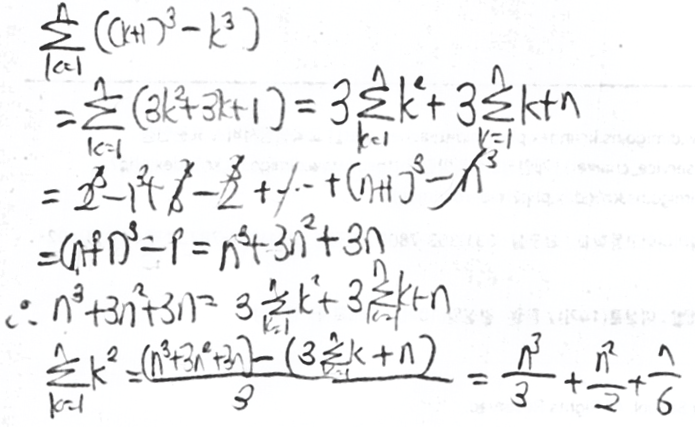 \sum_{k=1}^{n} ((k+1)^3 - k^3)
= \sum_{k=1}^{n} (3k^2+3k+1) = 3\sum_{k=1}^{n} k^2 + 3\sum_{k=1}^{n} k+n
= 2^3 - 1^3 + 3^3 - 2^3 + \cdots + (n+1)^3 - n^3
= (n+1)^3 - 1^3 = n^3+3n^2+3n
∴ n^3+3n^2+3n = 3\sum_{k=1}^{n} k^2 + 3\sum_{k=1}^{n} k+n
\sum_{k=1}^{n} k^2 = \frac{(n^3+3n^2+3n) - (3\sum_{k=1}^{n} k + n)}{3} = \frac{n^3}{3} + \frac{n^2}{2} + \frac{n}{6}